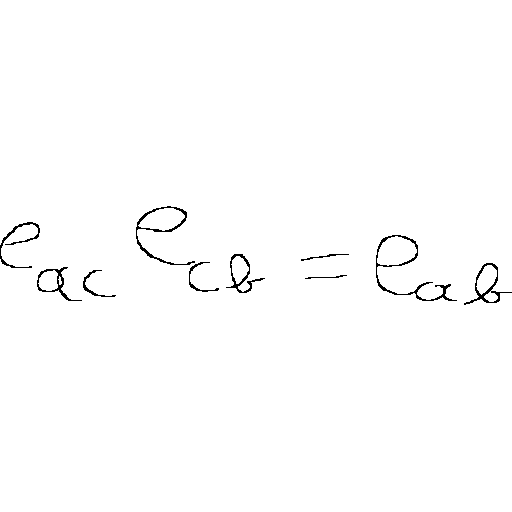 e_{ac} e_{cb} = e_{ab}